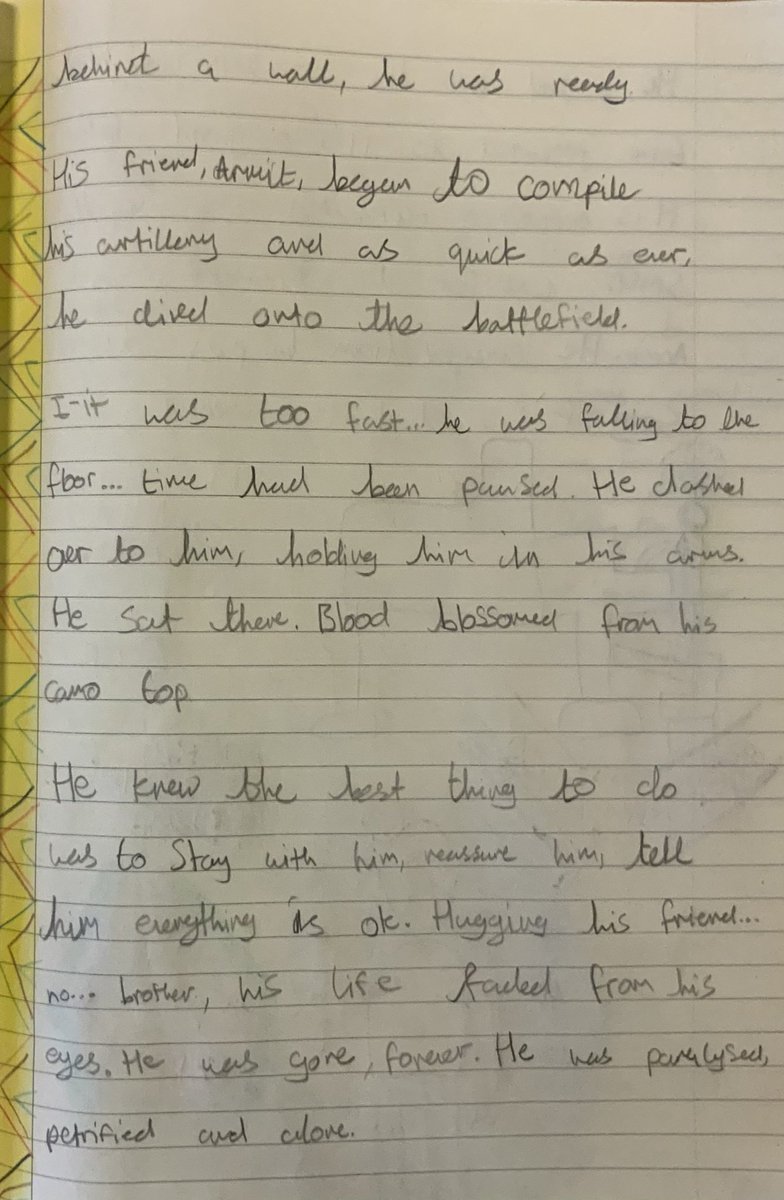 behind a wall, he was ready
His friend, Armit, began to compile
his artillery and as quick as ever,
he dived onto the battlefield.
I-it was too fast... he was falling to the
floor... time had been paused. He dashed
over to him, holding him in his arms.
He sat there. Blood blossomed from his
camo top
He knew the best thing to do
was to stay with him, reassure him, tell
him everything is ok. Hugging his friend...
no... brother, his life faded from his
eyes. He was gone, forever. He was paralysed,
petrified and alone.